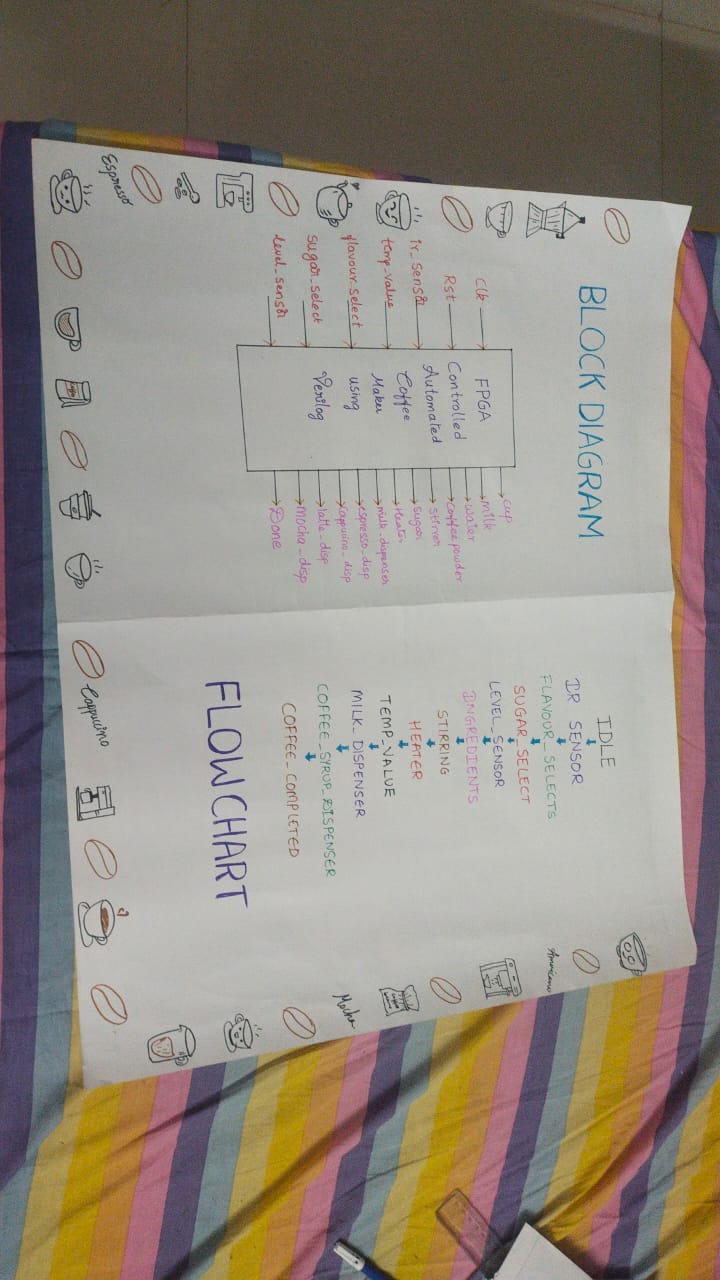 BLOCK DIAGRAM
Clk
Rst
ir_sensor
temp_value
flavour_select
sugar_select
level_sensor
FPGA
Controlled
Automated
Coffee
Maker
using
Verilog
cup
milk
water
coffee powder
stirrer
sugar
Heater
milk_dispenser
espresso_disp
cappucino_disp
latte_disp
mocha_disp
Done
IDLE
IR SENSOR
FLAVOUR_SELECTS
SUGAR_SELECT
LEVEL_SENSOR
INGREDIENTS
STIRRING
HEATER
TEMP_VALUE
MILK_DISPENSER
COFFEE_SYRUP_DISPENSER
COFFEE_COMPLETED
FLOWCHART
Espresso
Cappucino
Mocha
Americano